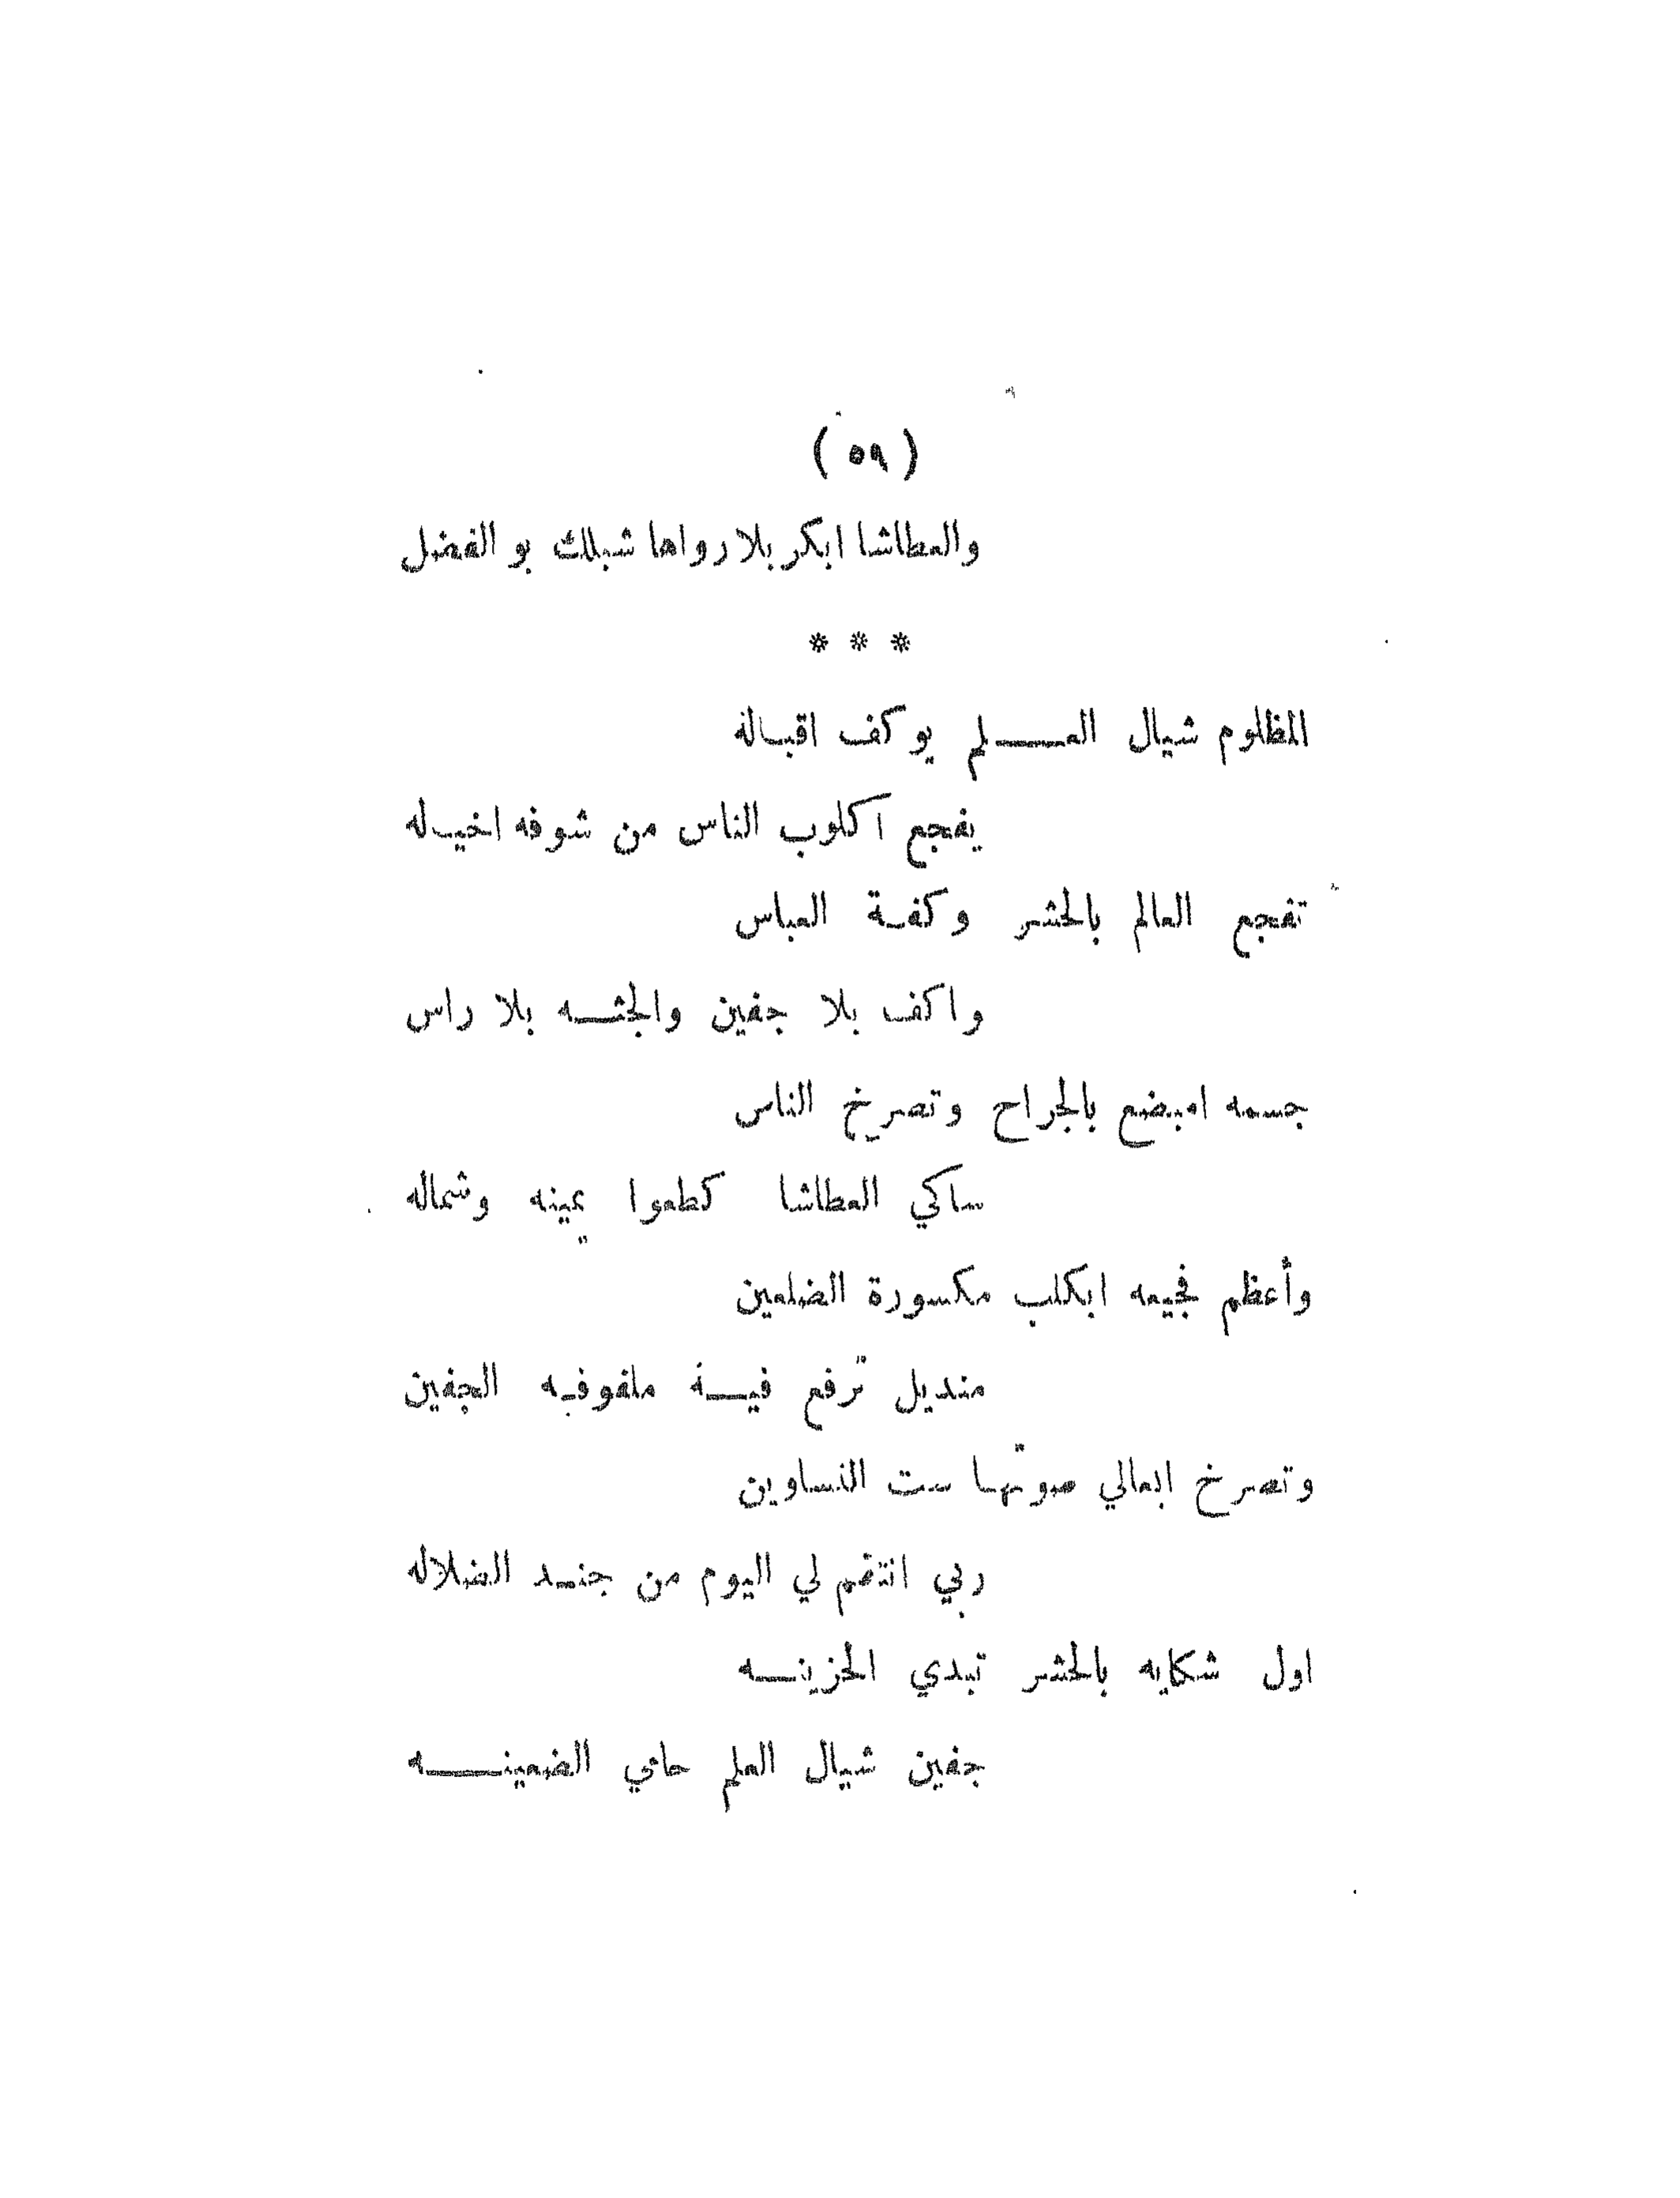 ( ٥٩ )
والعطاشا ابكربلا رواها شبلك بو الفضل
* * *
المظلوم شيال العـــلم يوكف اقبالة
يفجع اكلوب الناس من شوفه اخياله
تفجع العالم بالحشر وكفة العباس
واكف بلا جفين والجثــه بلا راس
جسمه امبضع بالجراح وتصرخ الناس
ساكي العطاشا كطعوا يمينه وشماله
وأعظم فجيعه ابكلب مكسورة الضلعين
منديل ترفع فيــة ملفوفه الجفين
وتصرخ ابعالي صوتها ست النساوين
ربي انتقم لي اليوم من جنـد الضلاله
اول شكايه بالحشر تبدي الحزينــه
جفين شيال العلم حامي الضعينـــه